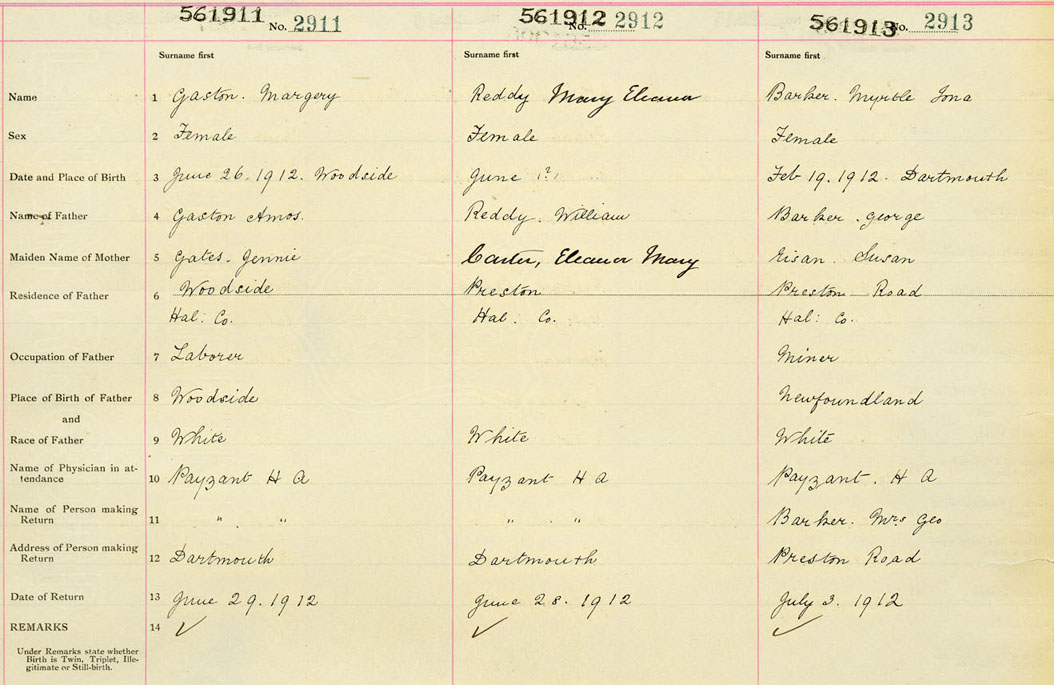 561911 No. 2911 561912 No. 2912 561913 No. 2913
Surname first Surname first Surname first
Name 1 Gaston. Margery Reddy Mary Eleanor Barker. Myrtle Iona
Sex 2 Female Female Female
Date and Place of Birth 3 June 26. 1912. Woodside June ? Feb 19. 1912. Dartmouth
Name of Father 4 Gaston Amos. Reddy. William Barker. George
Maiden Name of Mother 5 Gates. Jennie Carter, Eleanor Mary Eisan. Susan
Residence of Father 6 Woodside Preston Preston Road
Hal: Co. Hal. Co. Hal: Co.
Occupation of Father 7 Laborer Miner
Place of Birth of Father 8 Woodside Newfoundland
and
Race of Father 9 White White White
Name of Physician in at-
tendance 10 Payzant H A Payzant H A Payzant. H A
Name of Person making
Return 11 " " " " Barker. Mrs Geo
Address of Person making
Return 12 Dartmouth Dartmouth Preston Road
Date of Return 13 June 29. 1912 June 28. 1912 July 3. 1912
REMARKS 14 ✓ ✓ ✓
Under Remarks state whether
Birth is Twin, Triplet, Ille-
gitimate or Still-birth.